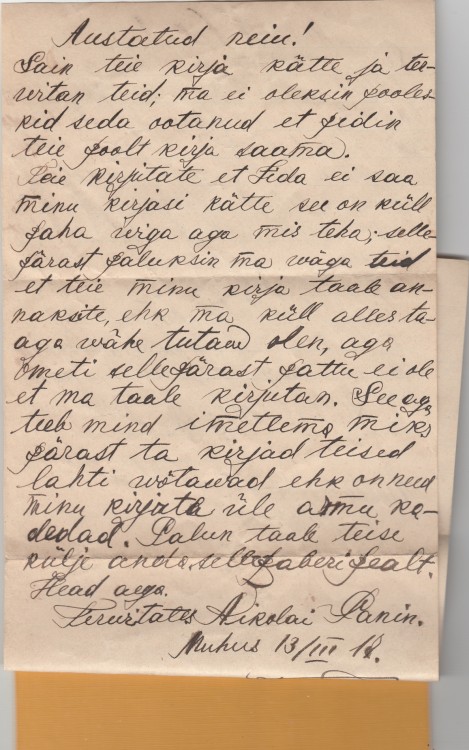 Austatud neiu!
Sain teie kirja kätte ja ter-
witan teid; ma ei oleksin pooles-
kid seda ootanud et pidin
teie poolt kirja saama.
Teie kirjutate et Lida ei saa
minu kirjasi kätte see on küll
paha wiga aga mis teha; selle
pärast paluksin ma wäga teid
et teie minu kirja taale an-
naksite, ehk ma küll alles ta-
aga wähe tutaw olen, aga
ometi selle pärast pattu ei ole
et ma taale kirjutan. See aga
teeb mind imetlema miks
pärast ta kirjad teised
lahti wõtawad ehk on need
minu kirjate üle armu ka-
dedad. Palun taale teise
külje anda selle paberi pealt.
Head aega.
Terwitates Nikolai Panin.
Muhus 13/III